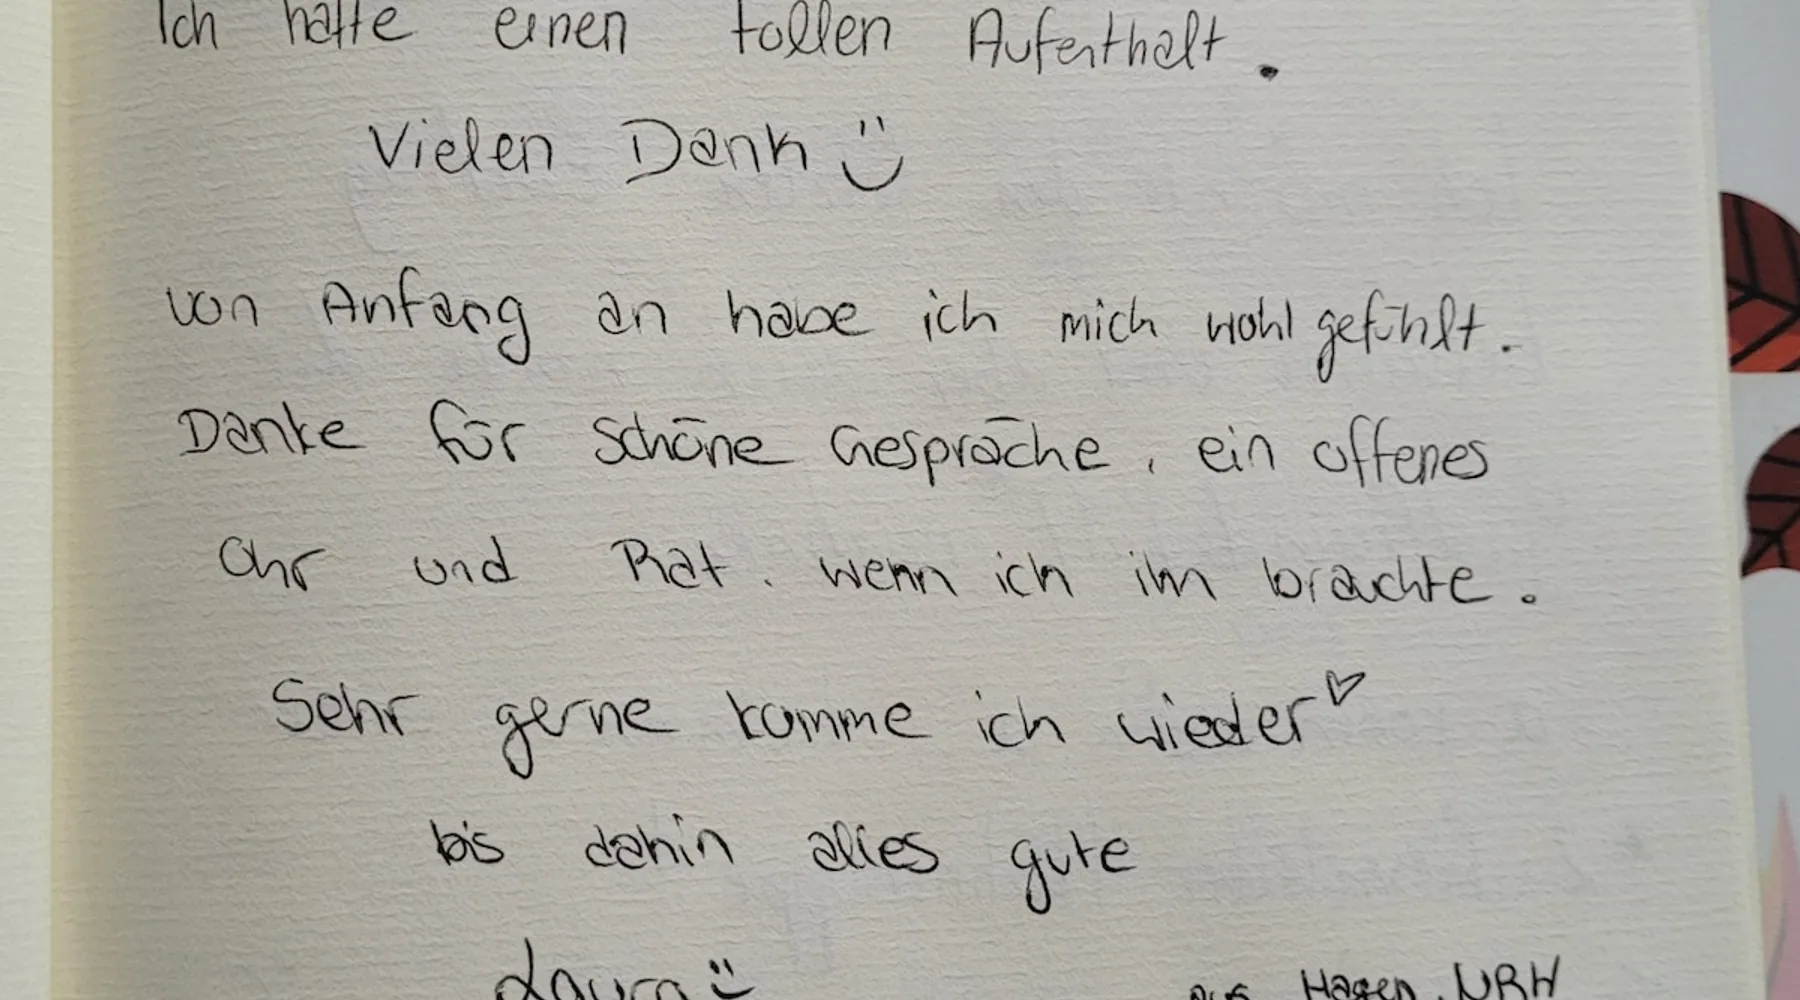 Ich hatte einen tollen Aufenthalt.
Vielen Dank :)
von Anfang an habe ich mich wohl gefühlt.
Danke für schöne Gespräche, ein offenes
Ohr und Rat, wenn ich ihn brauchte.
Sehr gerne komme ich wieder ♡
bis dahin alles gute
Laura :)
aus Hagen, NRW